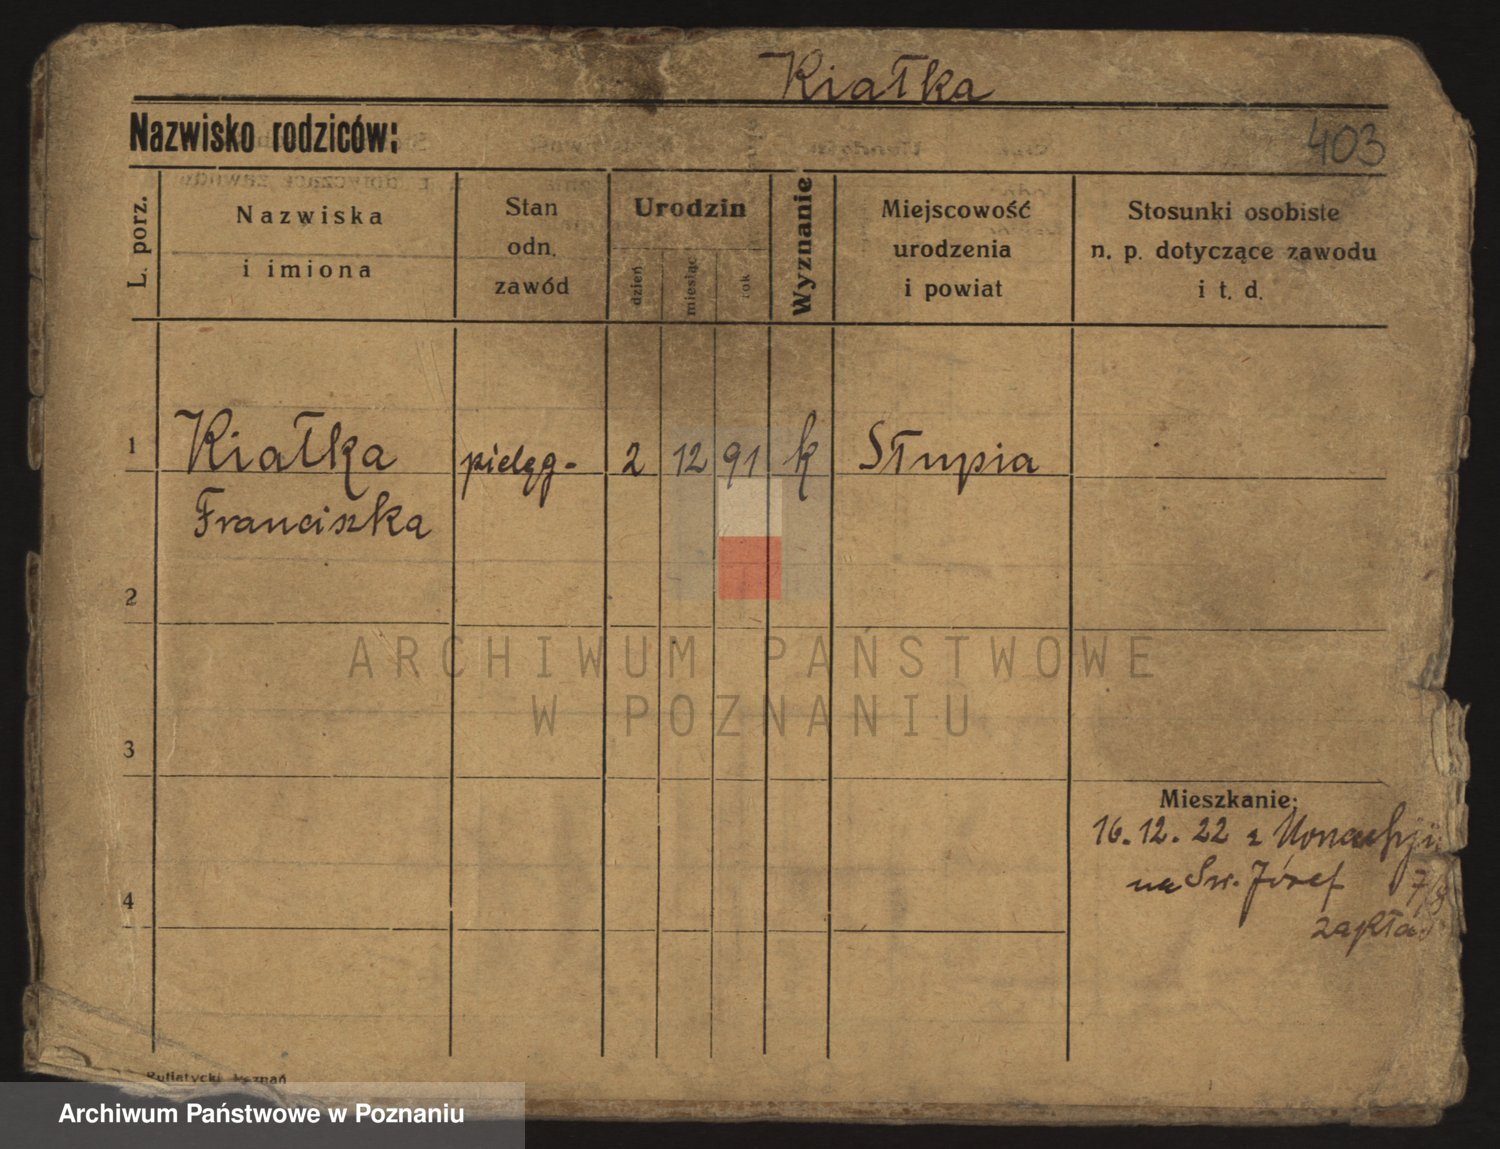 Kiałka
Nazwisko rodziców:
403
L. porz.
Nazwiska
i imiona
Stan
odn.
zawód
Urodzin
dzień
miesiąc
rok
Wyznanie
Miejscowość
urodzenia
i powiat
Stosunki osobiste
n. p. dotyczące zawodu
i t. d.
1
Kiałka
pielęg-
2
12
91
k
Słupia
Franciszka
2
ARCHIWUM PAŃSTWOWE
W POZNANIU
3
Mieszkanie:
16.12.22 z Monachju
na Św. Józef 7/8
4
zakła
Putiatycki Poznań
Archiwum Państwowe w Poznaniu